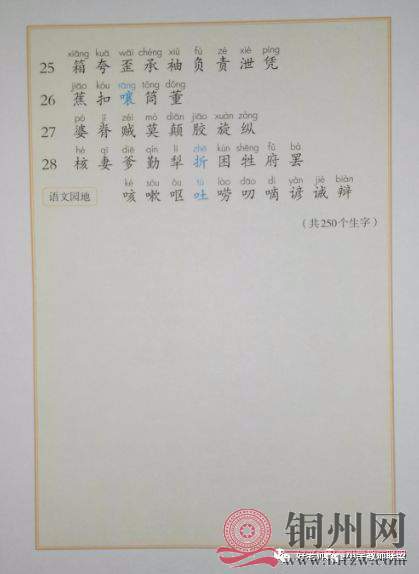 xiāng kuā wāi chéng xiù fù zé xiè píng
25 箱 夸 歪 承 袖 负 责 泄 凭
jiāo kòu rāng tǒng dǒng
26 蕉 扣 嚷 筒 董
pó jǐ zéi mò diān jiāo xuán zòng
27 婆 脊 贼 莫 颠 胶 旋 纵
hé qī diē qín lí zhé kùn shēng fǔ bà
28 核 妻 爹 勤 犁 折 困 牲 府 罢
ké sòu ǒu tù lào dao dī yàn jiè biàn
语文园地 咳 嗽 呕 吐 唠 叨 嘀 谚 诫 辩
(共250个生字)
铜州网